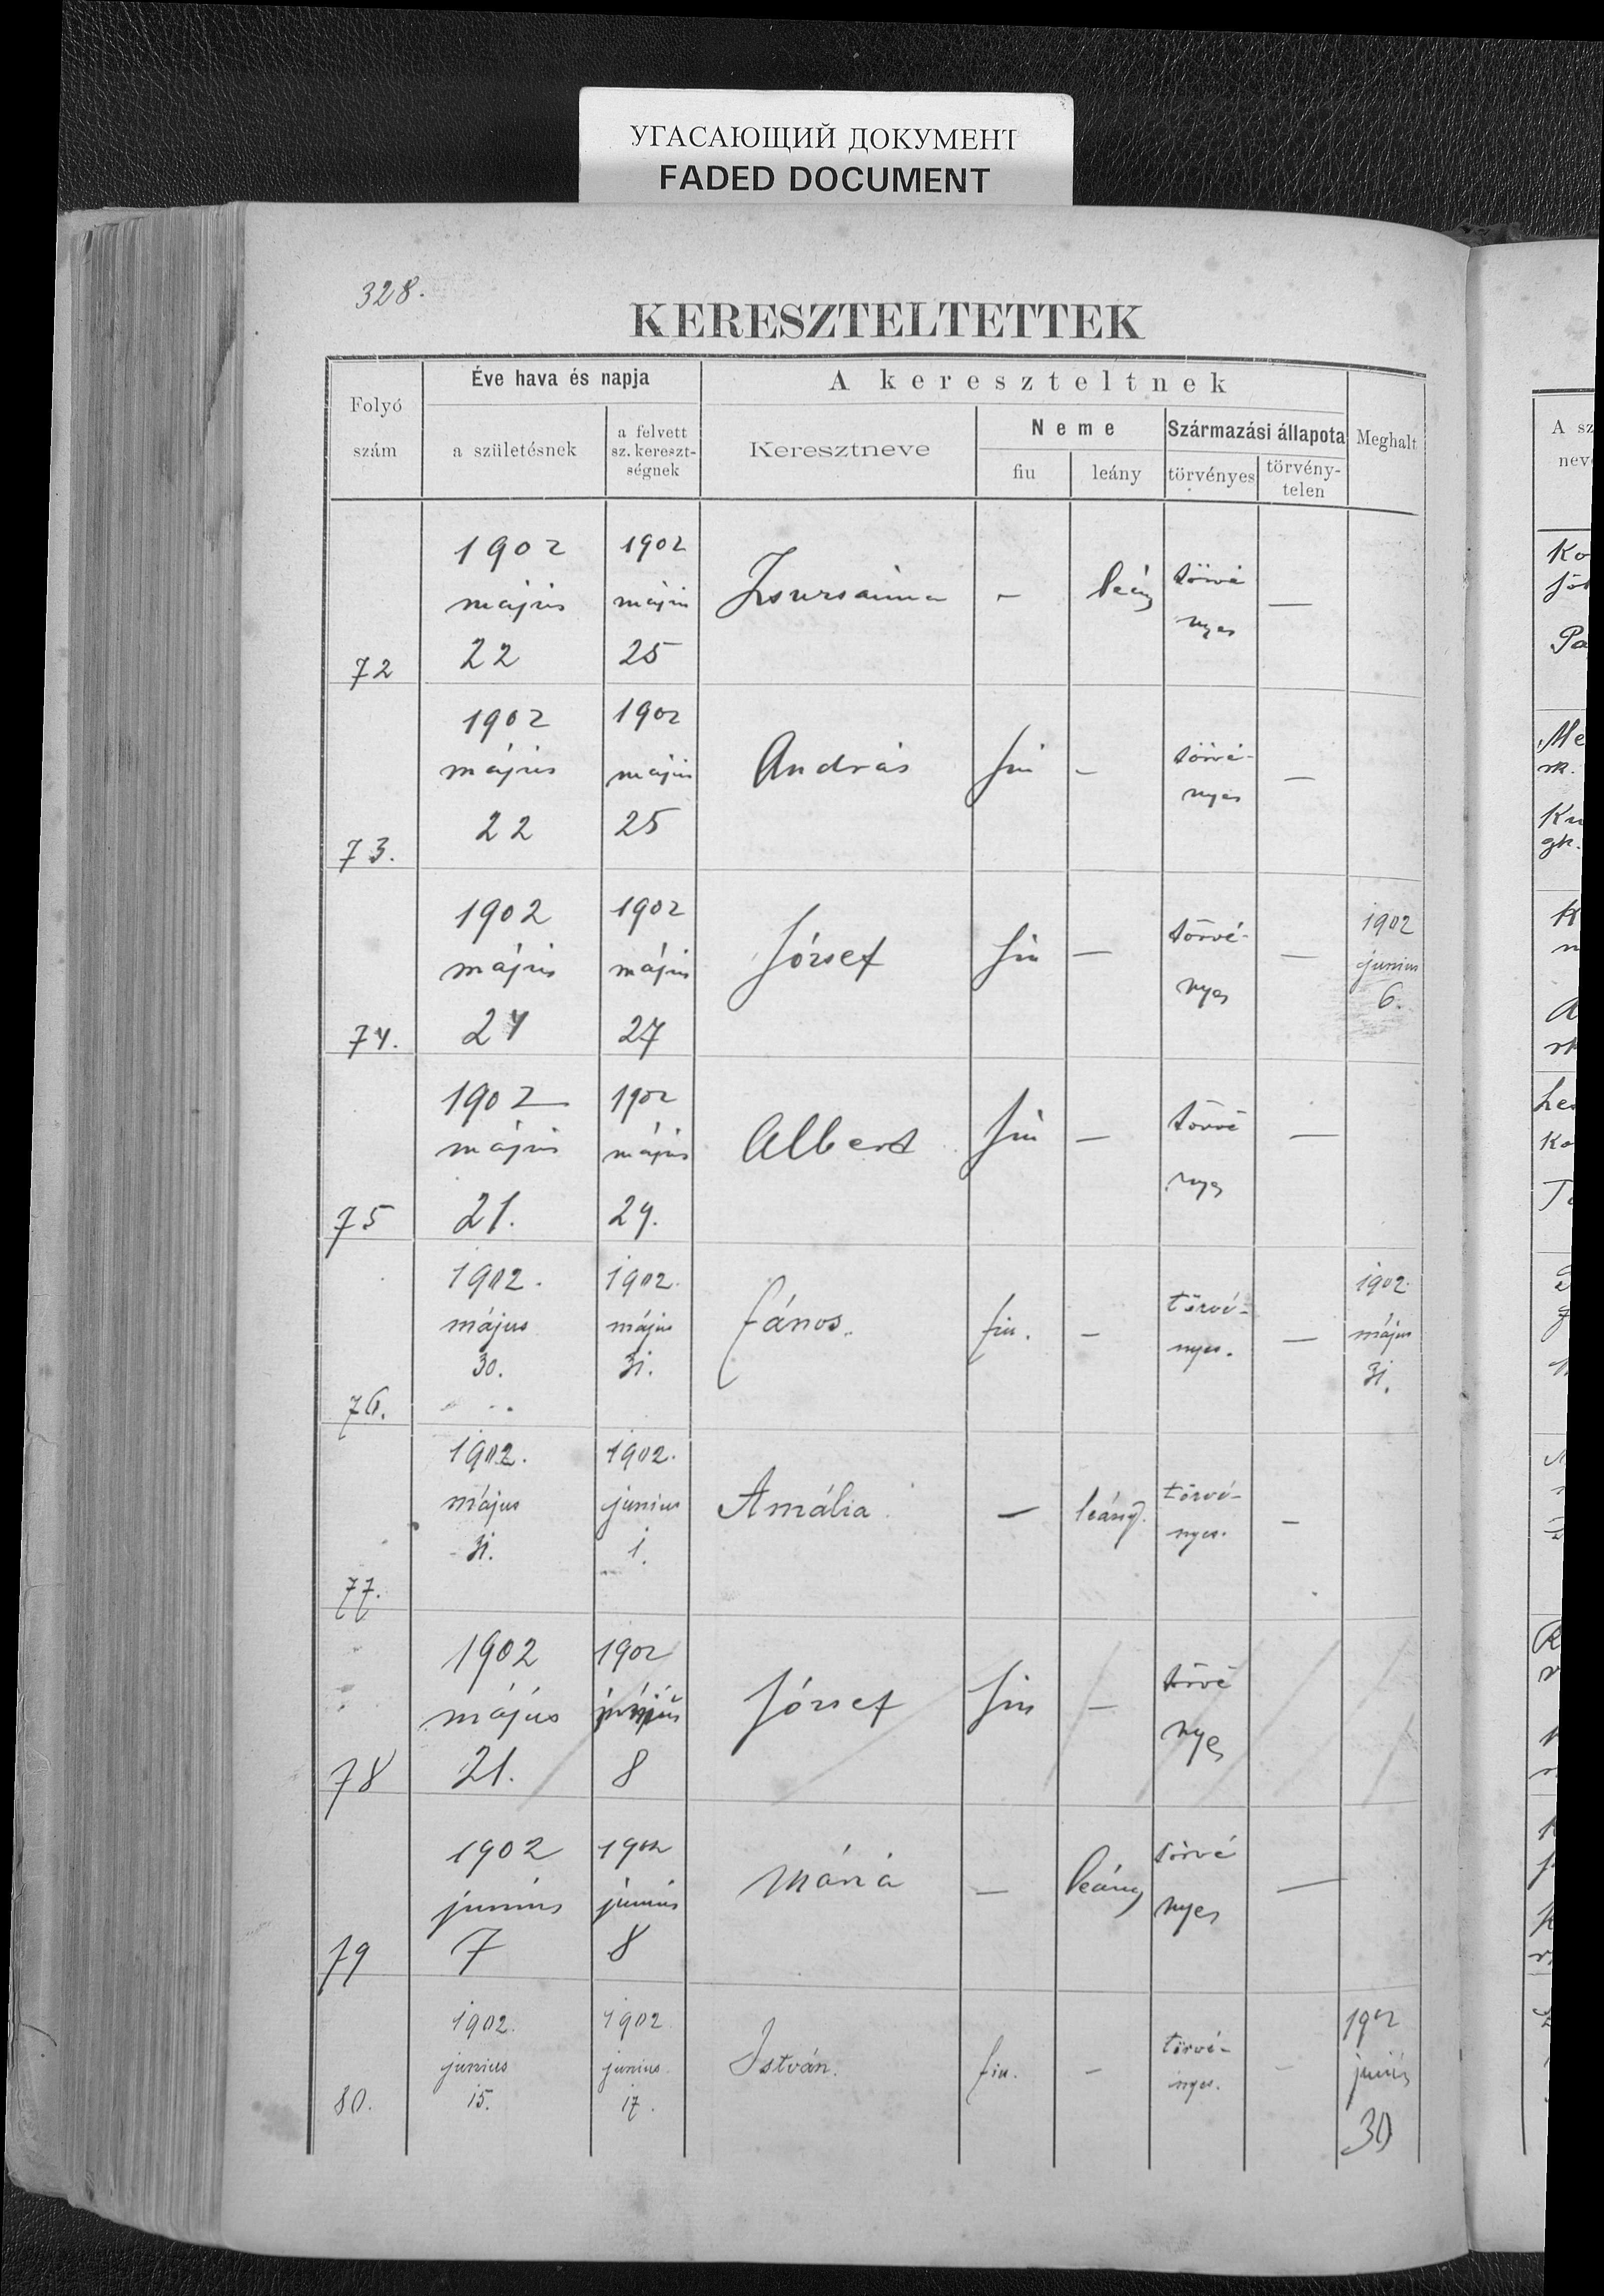 УГАСАЮЩИЙ ДОКУМЕНТ
FADED DOCUMENT
328.
KERESZTELTETTEK
Folyó szám
Éve hava és napja
a születésnek
a felvett sz. kereszt-ségnek
A kereszteltnek
Keresztneve
Neme
fiu
leány
Származási állapota
törvényes
törvény-telen
Meghalt
A sz
nev
72
1902 május 22
1902 május 25
Zsuzsánna
-
leány
törvé
nyes
—
73.
1902 május 22
1902 május 25
András
fiu
-
törvé-
nyes
—
74.
1902 május 24
1902 május 27
József
fiu
—
törvé-
nyes
—
1902 junius 6.
75
1902 május 21.
1902 május 29.
Albert
fiu
—
törvé
nyes
—
76.
1902. május 30.
1902. május 31.
János.
fiu.
-
törvé-
nyes.
—
1902. május 31.
77.
1902. május 31.
1902. junius 1.
Amália
—
leány.
törvé-
nyes.
-
78
1902 május 21.
1902 június 8
József
fiu
—
törvé
nyes
79
1902 junius 7
1902 június 8
Mária
—
leány
törvé
nyes
—
80.
1902. junius 15.
1902 junius 17.
István.
fiu.
-
törvé-
nyes.
-
1902 juniús 30
Ko
Pa
Me
m.
Ku
gk.
Ko